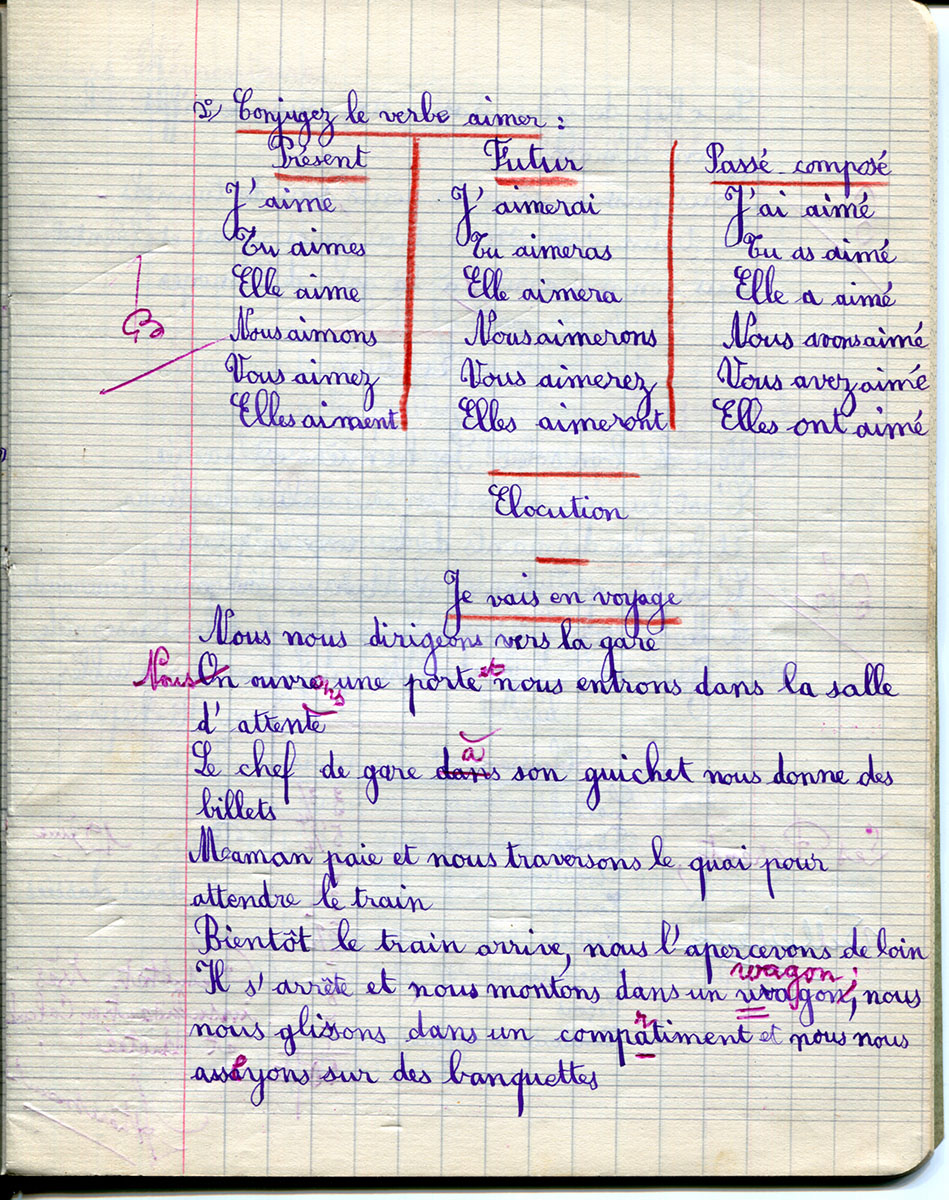 2°) Conjuguez le verbe aimer :
Présent Futur Passé composé
J'aime J'aimerai J'ai aimé
Tu aimes Tu aimeras Tu as aimé
Elle aime Elle aimera Elle a aimé
Nous aimons Nous aimerons Nous avons aimé
Vous aimez Vous aimerez Vous avez aimé
Elles aiment Elles aimeront Elles ont aimé
Elocution
Je vais en voyage
Nous nous dirigeons vers la gare
Nous On ouvrons une porte et nous entrons dans la salle
d'attente
Le chef de gare dans à son guichet nous donne des
billets
Maman paie et nous traversons le quai pour
attendre le train
Bientôt le train arrive, nous l'apercevons de loin
wagon;
Il s'arrête et nous montons dans un wagon; nous
nous glissons dans un compartiment et nous nous
asseyons sur des banquettes